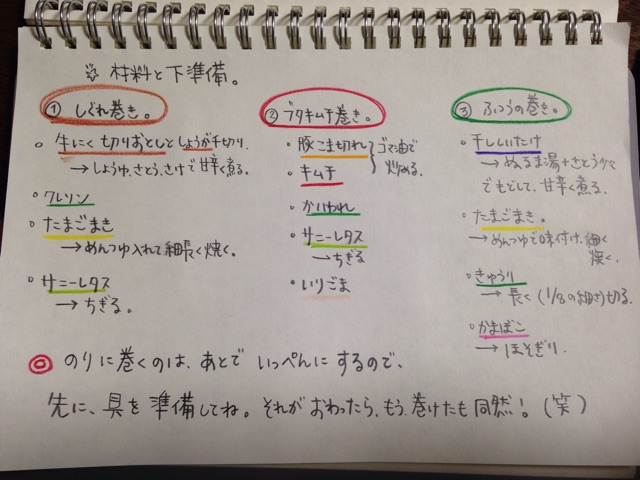 ※ 材料と下準備。
① しぐれ巻き。
。牛にく切りおとしとしょうが千切り.
→しょうゆ.さとう.さけで甘辛く煮る.
。クレソン
。たまごまき
→めんつゆ入れて細長く焼く。
。サニーレタス
→ちぎる。
② ブタキムチ巻き。
・豚こま切れ
・キムチ
ゴマ油で
炒める.
・かいわれ
・サニーレタス
→ちぎる
・いりごま
③ ふつうの巻き。
・干ししいたけ
→ぬるま湯+さとう少々
でもどして、甘辛く煮る.
・たまごまき。
→めんつゆで味付け.細く
焼く.
・きゅうり
→長く(1/8の細さ)切る.
・かまぼこ
→ほそぎり.
◎ のりに巻くのは、あとで いっぺんに するので、
先に、具を準備してね。それが おわったら、もう、巻けたも同然!(笑)